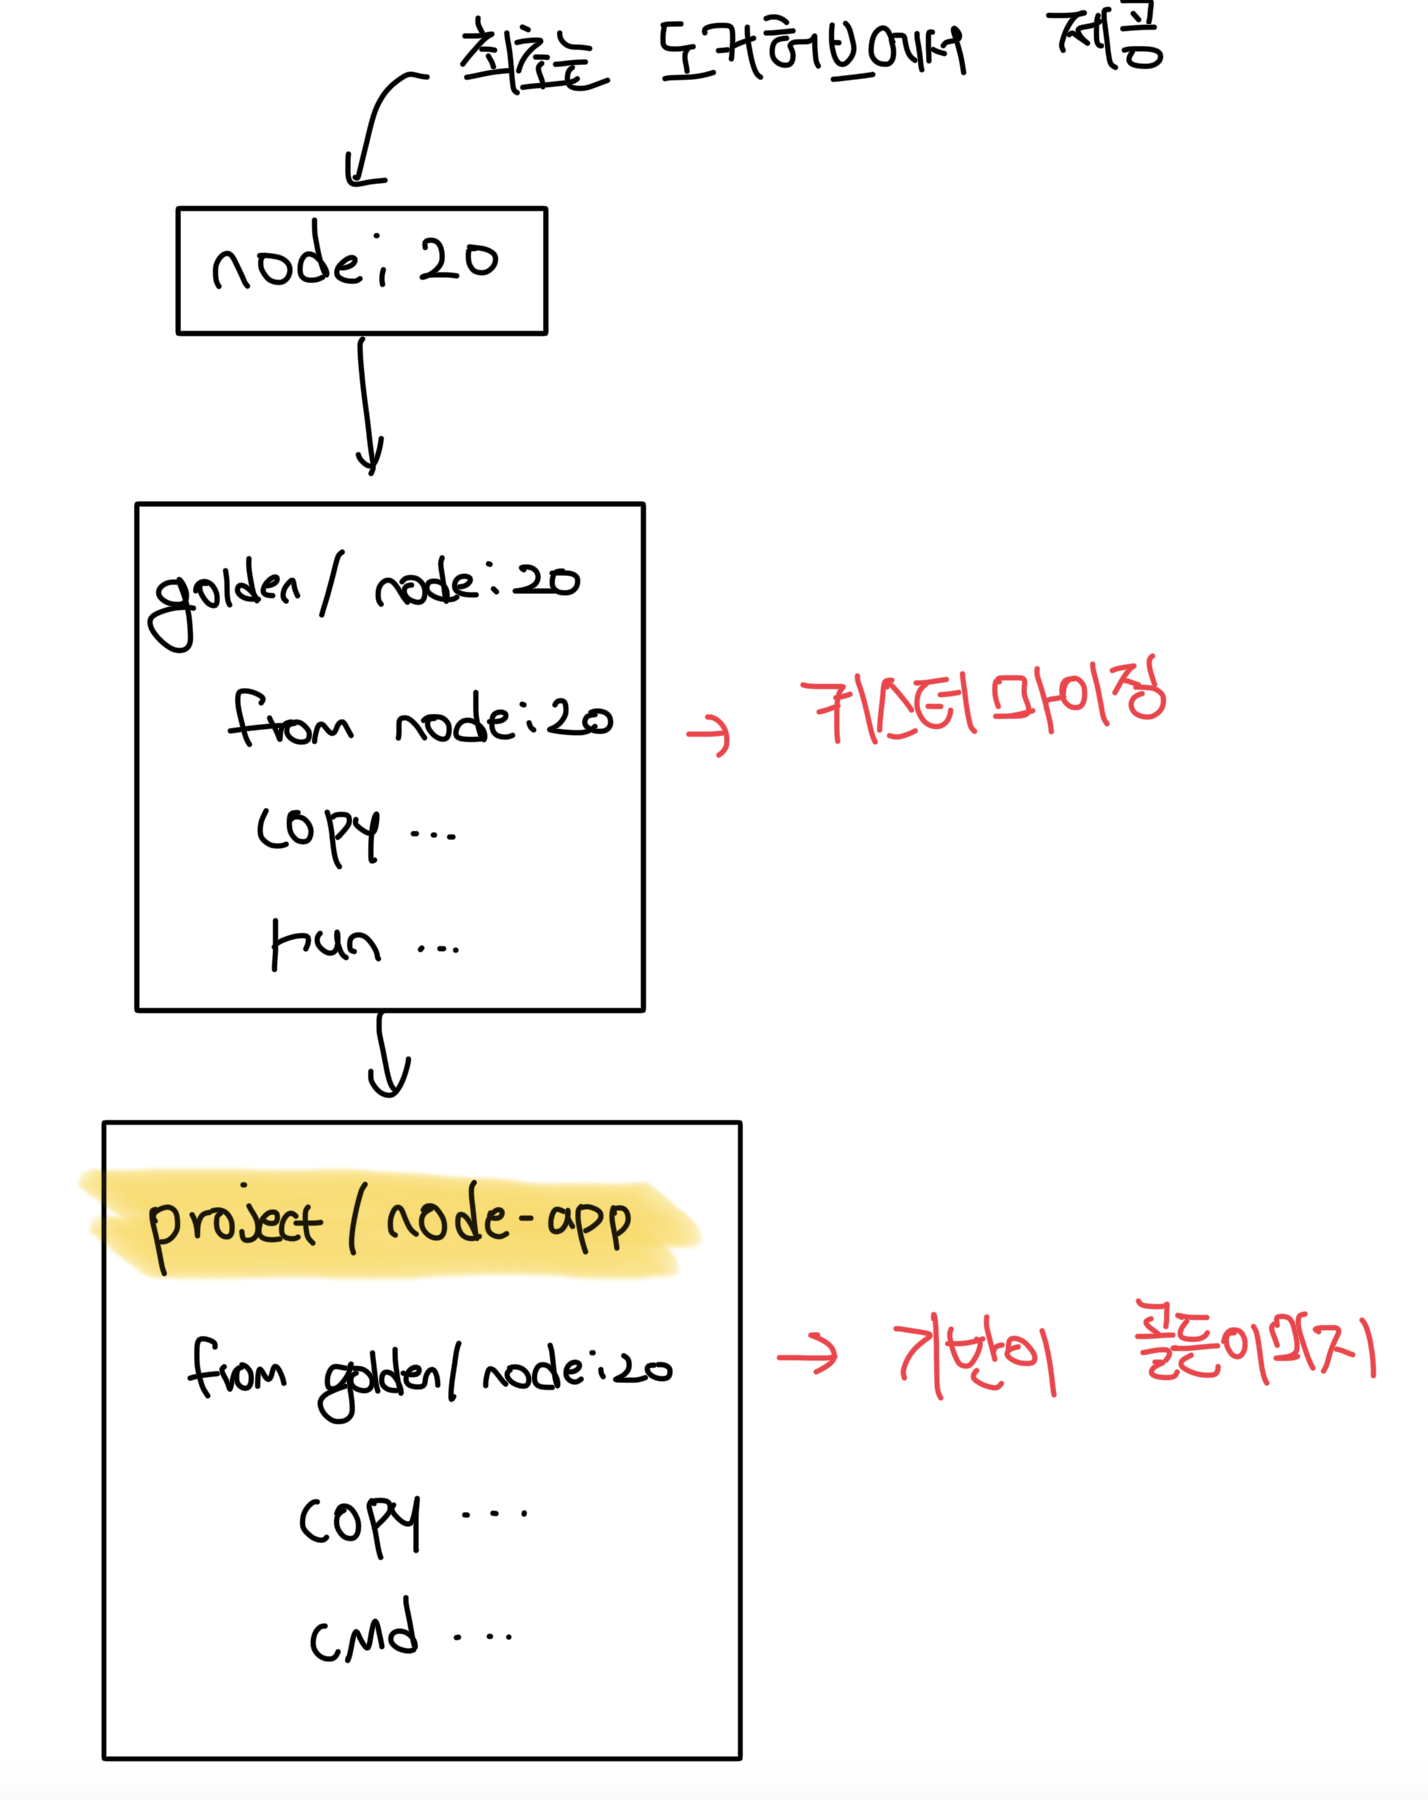 최초는 도커허브에서 제공
node: 20
golden / node:20
from node:20
copy ...
run ...
→ 커스터마이징
project / node-app
from golden / node:20
copy ...
cmd ...
→ 기반이 골든이미지